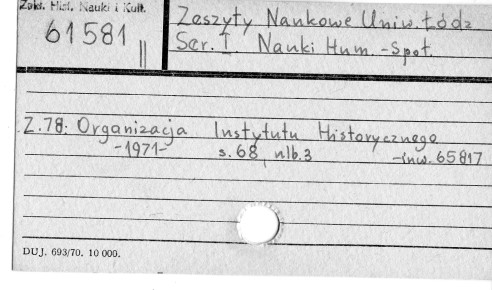 Zakł. Hist. Nauki i Kult.
61581 II
Zeszyty Naukowe Uniw. Łódz
Ser. I. Nauki Hum.-Społ.
Z.78: Organizacja Instytutu Historycznego
-1971- s.68, nlb.3 -inw. 65817
DUJ. 693/70. 10 000.